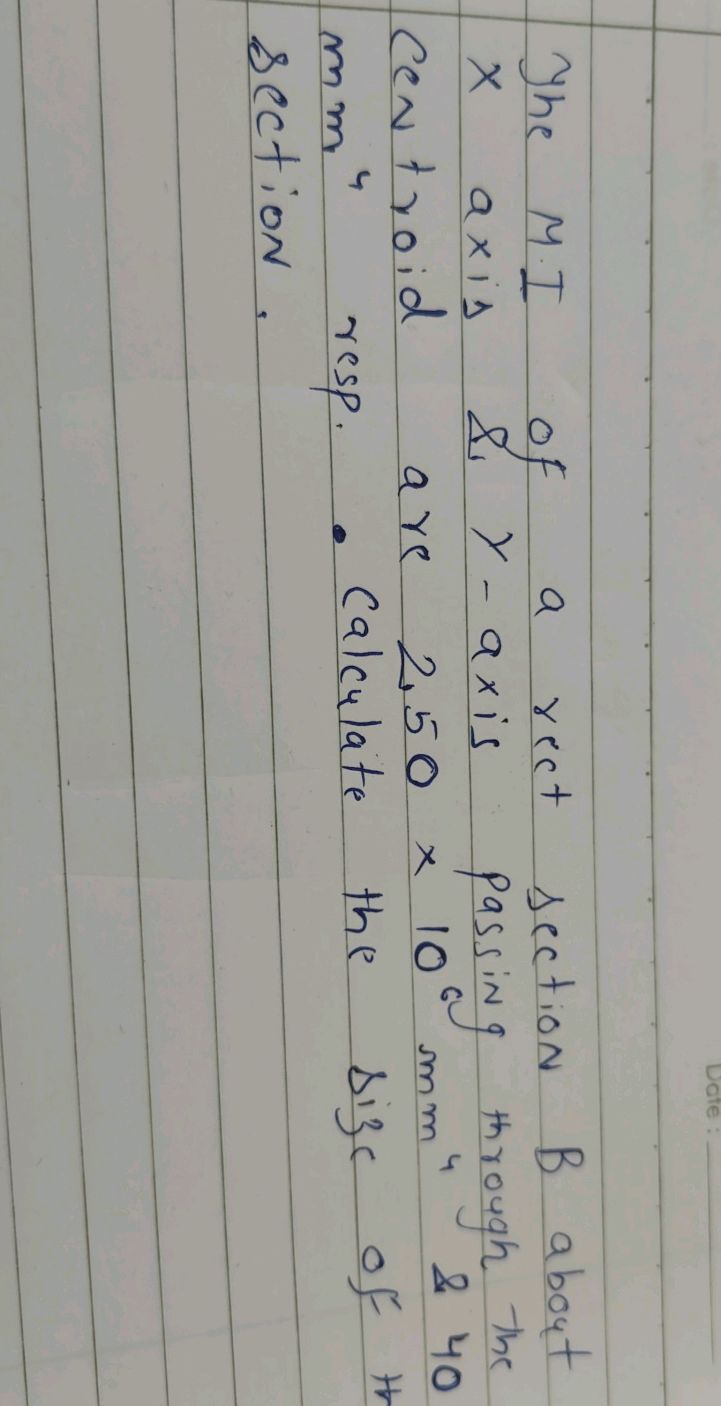 Date :
The M.I of a rect section B about
x axis & y-axis passing through the
centroid are 2,50 x 10⁶ mm⁴ & 40
mm⁴ resp. . Calculate the size of th
section.